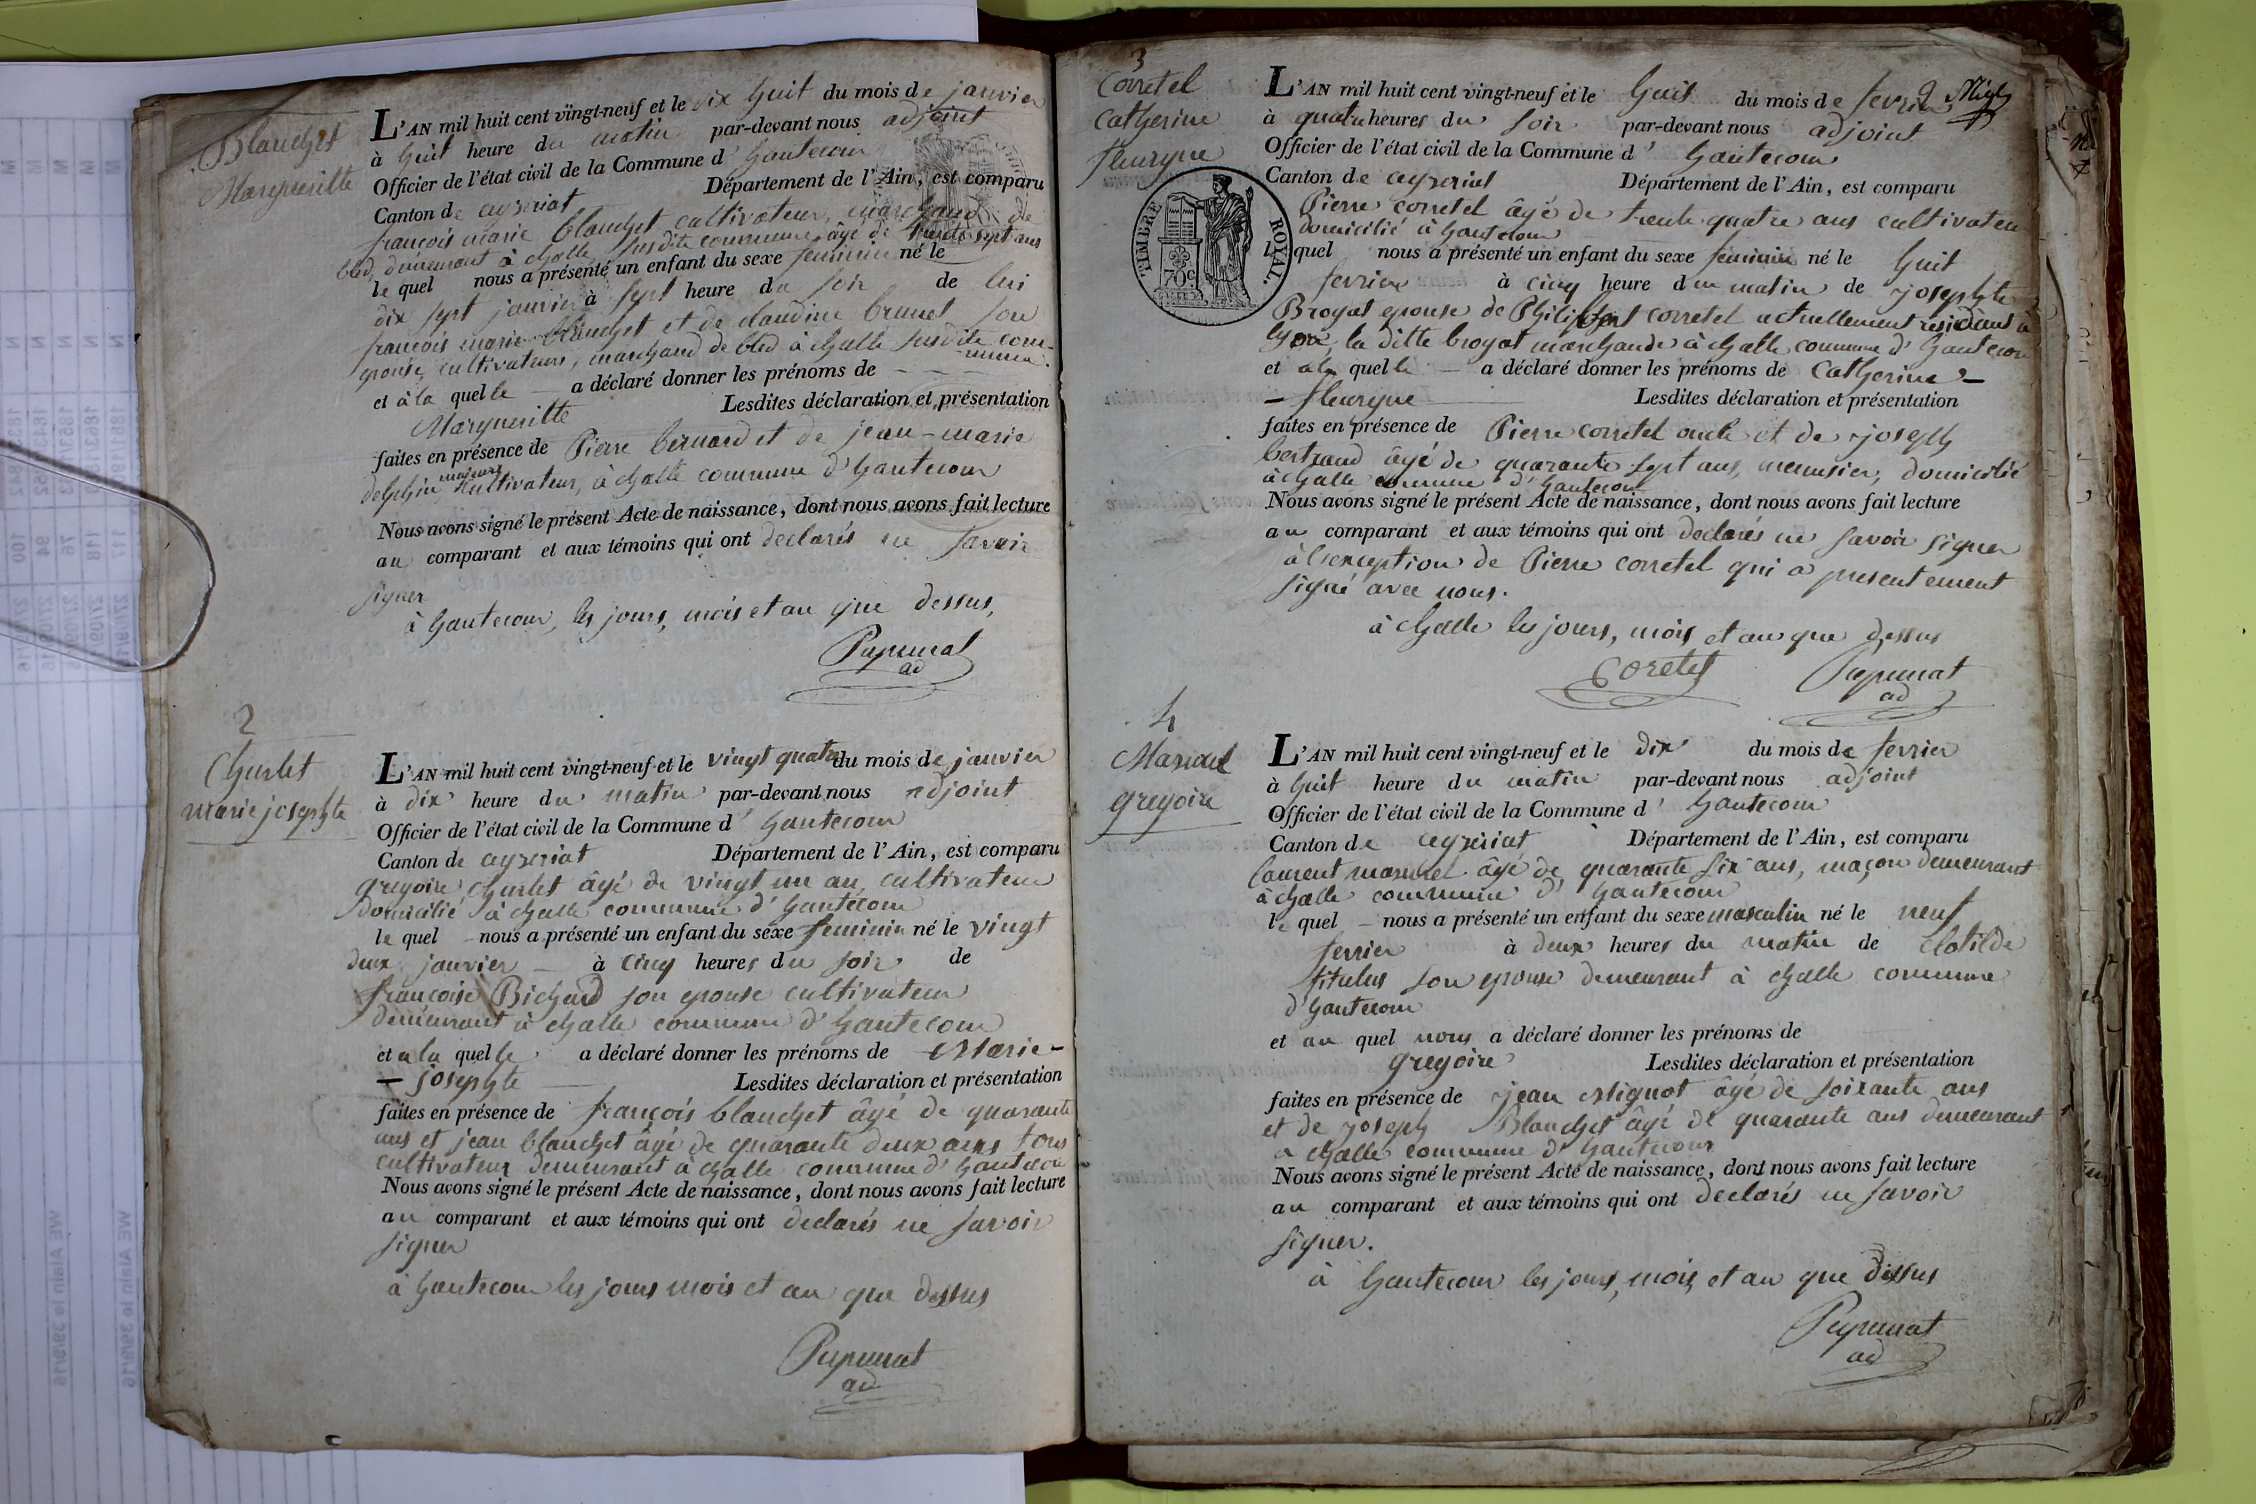 Blanchet
Margueritte
L'AN mil huit cent vingt-neuf et le dix huit du mois de janvier
à huit heure du matin par-devant nous adjoint
Officier de l'état civil de la Commune d' hautecour
Canton de ayzeriat Département de l'Ain, est comparu
françois marie blanchet cultivateur, marchand de
bled, demeurant à challe susdite commune âgé de trente sept ans
le quel nous a présenté un enfant du sexe feminin né le
dix sept janvier à sept heure du soir de lui
françois marie blanchet et de claudine brunet son
epouse, cultivateurs, marchand de bled à challe susdite com-
-mune.
et à la quelle — a déclaré donner les prénoms de - - -
Margueritte Lesdites déclaration et présentation
faites en présence de Pierre bernard et de jean-marie
delphin majeurs cultivateur, à challe commune d'hautecour
Nous avons signé le présent Acte de naissance, dont nous avons fait lecture
au comparant et aux témoins qui ont declarés ne savoir
signer
à hautecour, les jours, mois et an que dessus,
Papunat
ad
2
Churlet
marie josephte
L'AN mil huit cent vingt-neuf et le vingt quatre du mois de janvier
à dix heure du matin par-devant nous adjoint
Officier de l'état civil de la Commune d' hautecour
Canton de ayzeriat Département de l'Ain, est comparu
gregoire churlet âgé de vingt un an, cultivateur
domicilié à challe commune d'hautecour
le quel - nous a présenté un enfant du sexe feminin né le vingt
deux janvier — à cinq heures du soir de
françoise Bichard son epouse cultivateur
demeurant à challe commune d'hautecour
et a la quelle a déclaré donner les prénoms de Marie-
- josephte — Lesdites déclaration et présentation
faites en présence de françois blanchet âgé de quarante
ans et jean blanchet âgé de quarante deux ans tous
cultivateur demeurant à challe commune d'hautecour
Nous avons signé le présent Acte de naissance, dont nous avons fait lecture
au comparant et aux témoins qui ont declarés ne savoir
signer
à hautecour les jours mois et an que dessus
Papunat
ad
3
Corretel
Catherine
fleuryne
TIMBRE ROYAL.
70c
L'AN mil huit cent vingt-neuf et le huit du mois de fevrier
à quatre heures du soir par-devant nous adjoint
Officier de l'état civil de la Commune d' hautecour
Canton de ayzeriat Département de l'Ain, est comparu
Pierre corretel âgé de trente quatre ans cultivateur
domicilié à hautecour
Le quel nous a présenté un enfant du sexe feminin né le huit
fevrier à cinq heure du matin de josephte
Broyat epouse de Philippe corretel actuellement residant à
lyon la ditte broyat marchande à challe commune d'hautecour
et à la quelle — a déclaré donner les prénoms de Catherine -
- fleuryne Lesdites déclaration et présentation
faites en présence de Pierre corretel oncle et de joseph
bertrand âgé de quarante sept ans, menusier, domicilié
à challe commune d'hautecour
Nous avons signé le présent Acte de naissance, dont nous avons fait lecture
au comparant et aux témoins qui ont declarés ne savoir signer
à l'exception de Pierre corretel qui a presentement
signé avec nous.
à challe les jours, mois et an que dessus
Coretel Papunat
ad
4
gregoire
L'AN mil huit cent vingt-neuf et le dix du mois de fevrier
à huit heure du matin par-devant nous adjoint
Officier de l'état civil de la Commune d' hautecour
Canton de ayzeriat Département de l'Ain, est comparu
laurent âgé de quarante six ans, maçon demeurant
à challe commune d'hautecour
le quel - nous a présenté un enfant du sexe masculin né le neuf
fevrier à deux heures du matin de Clotilde
titulus son epouse demeurant à challe commune
d'hautecour
et au quel nous a déclaré donner les prénoms de
gregoire Lesdites déclaration et présentation
faites en présence de jean Mignot âgé de soixante ans
et de joseph Blanchet âgé de quarante ans demeurant
a challe commune d'hautecour
Nous avons signé le présent Acte de naissance, dont nous avons fait lecture
au comparant et aux témoins qui ont declarés ne savoir
signer.
à hautecour les jours, mois et an que dessus
Papunat
ad